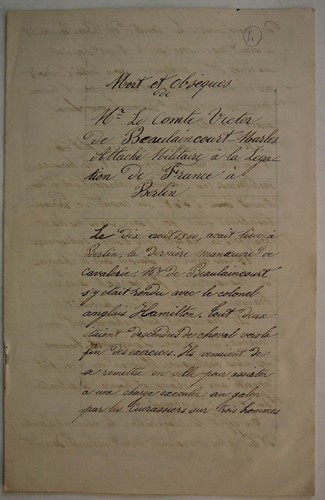 4
Mort et obsèques
de
Mr. Le Comte Victor
de Beaulaincourt-Marles
Attaché Militaire à la Léga-
tion de France à
Berlin
Le Dix août 1860, avait lieu à
Berlin, la dernière manœuvre de
Cavalerie; Mr. de Beaulaincourt
s'y était rendu avec le colonel
anglais Hamilton; tout deux
étaient descendus de cheval vers la
fin des exercices. Ils venaient de
se remettre en selle pour assister
à une charge exécutée au galop
par les Cuirassiers sur trois hommes